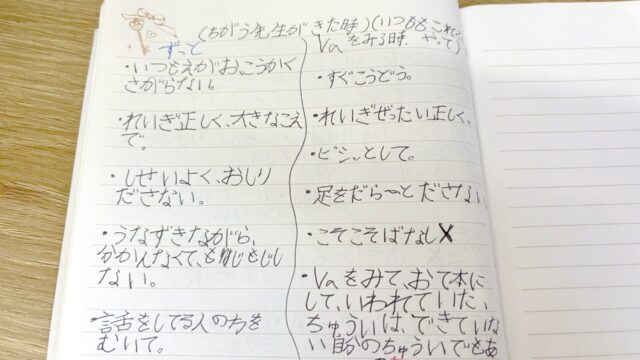 (ちがう先生がきた時)(いつもこれで
やって)
ずっと
・いつもえがお、こうかく
さがらない。
・れいぎ正しく、大きなこえ
で。
・しせいよく、おしり
ださない。
・うなずきながら、
分かんなくて、もじもじし
ない。
・話をしてる人のちを
むいて。
Vaをみる時
・すぐこうどう。
・れいぎぜったい正しく。
・ビシッとして。
・足をだら〜とださない
・こそこそばなし✗
・Vaをみて、おて本に
して、いわれていた、
ちゅういは、できていな
い自分のちゅういでもあ